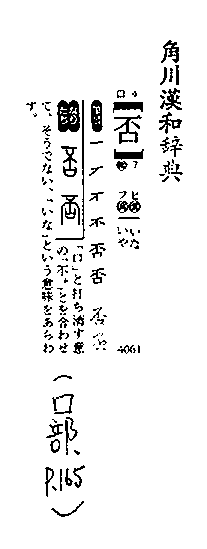 角川漢和辞典
口 4
否
7
ヒ いな
フ いや
4061
一 ア 不 不 否 否 否
「口」と打ち消す意
の「不」とを合わせ
て、そうでない、「いな」という意味をあらわ
す。
(口部、P.165)